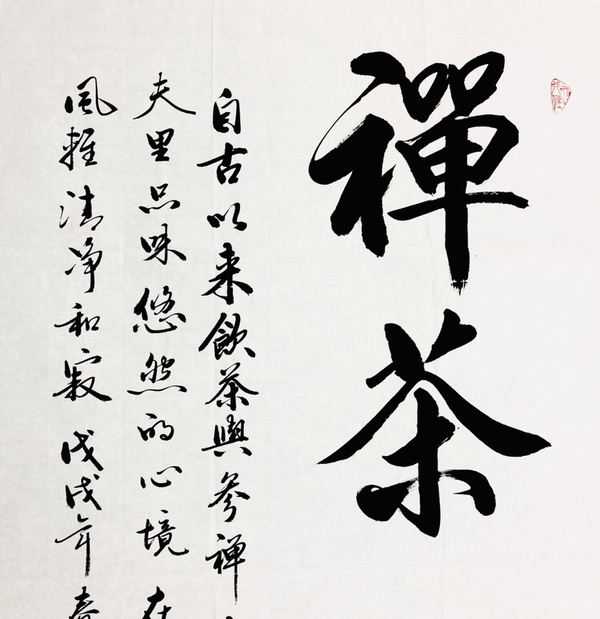 禪茶
自古以来飲茶與參禅
夫里品味悠然的心境在
風雅清净和寂戊戌年春